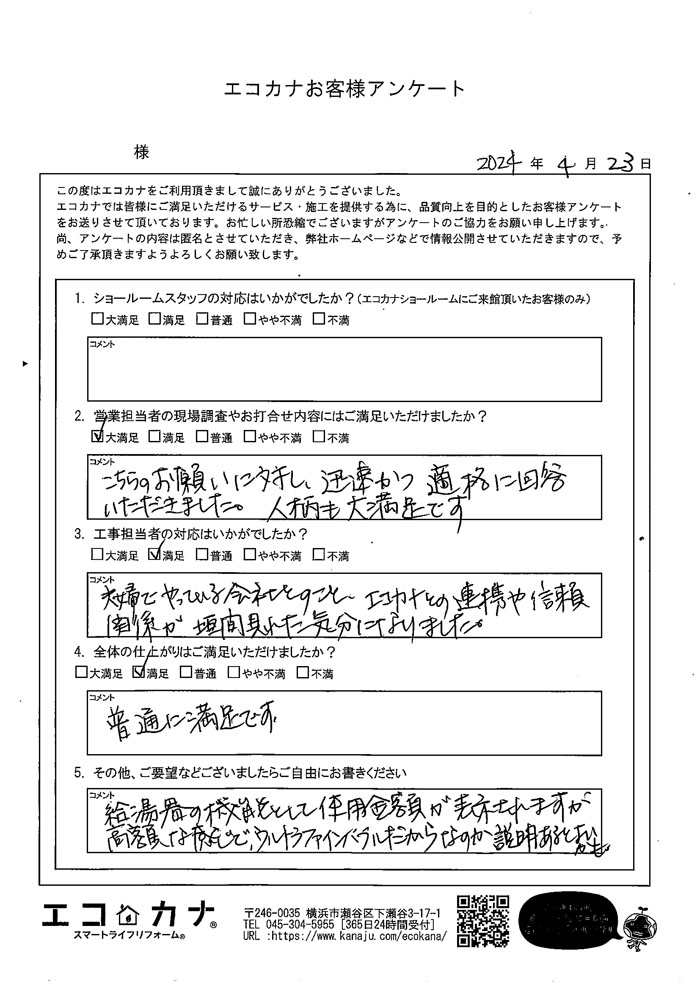 エコカナお客様アンケート
様
2024 年 4 月 23 日
この度はエコカナをご利用頂きまして誠にありがとうございました。
エコカナでは皆様にご満足いただけるサービス・施工を提供する為に、品質向上を目的としたお客様アンケート
をお送りさせて頂いております。お忙しい所恐縮でございますがアンケートのご協力をお願い申し上げます。
尚、アンケートの内容は匿名とさせていただき、弊社ホームページなどで情報公開させていただきますので、予
めご了承頂きますようよろしくお願い致します。
1. ショールームスタッフの対応はいかがでしたか？(エコカナショールームにご来館頂いたお客様のみ)
□大満足 □満足 □普通 □やや不満 □不満
コメント
2. 営業担当者の現場調査やお打合せ内容にはご満足いただけましたか？
☑大満足 □満足 □普通 □やや不満 □不満
コメント
こちらのお願いに対し、迅速かつ適格に回答
いただきました。人柄も大満足です
3. 工事担当者の対応はいかがでしたか？
□大満足 ☑満足 □普通 □やや不満 □不満
コメント
夫婦でやっている会社とのこと、エコカナとの連携や信頼
関係が垣間見れた気分になりました。
4. 全体の仕上がりはご満足いただけましたか？
□大満足 ☑満足 □普通 □やや不満 □不満
コメント
普通に満足です
5. その他、ご要望などございましたらご自由にお書きください
コメント
給湯器の機能として使用金額が表示されますが
高額な で、ウルトラファインバブルだからなのか説明あると
エコカナ®
スマートライフリフォーム®
〒246-0035 横浜市瀬谷区下瀬谷3-17-1
TEL 045-304-5955 [365日24時間受付]
URL :https://www.kanaju.com/ecokana/